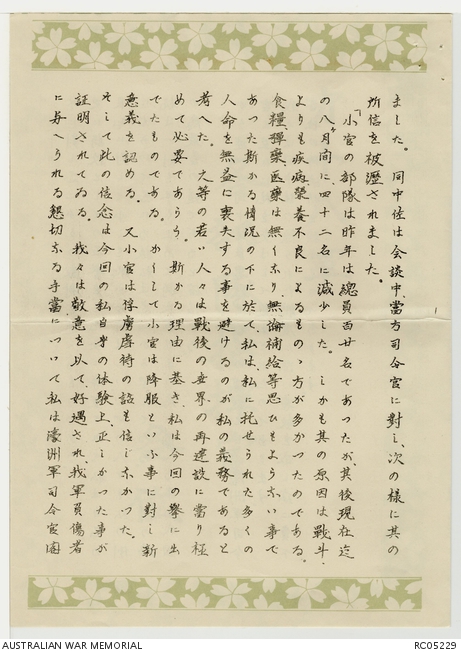 ました。同中佐は会談中當方司令官に對し、次の様に其の
所信を披瀝されました。
「小官の部隊は昨年は總員百廿名であつたが、其後現在迄
の八ヶ月間に、四十二名に減少した。しかも其の原因は戰斗
よりも疾病、榮養不良によるものゝ方が多かつたのである。
食糧、彈藥、医藥は無くなり、無論補給等思ひもよらない事で
あつた。斯かる情況の下に於て、私は、私に托せられた多くの
人命を無益に喪失する事を避けるのが私の義務であると
考へた。之等の若い人々は戰後の世界の再建設に當り極
めて必要であらう。斯かる理由に基き、私は今回の擧に出
でたものである。かくして小官は降服といふ事に對し新
意義を認める。又小官は俘虜虐待の話を信じなかつた。
そして此の信念は今回の私自身の体験上、正しかつた事が
証明されてゐる。我々は敬意を以て好遇され、我軍員傷者
に與へられる懇切なる手當について私は濠洲軍司令官閣
AUSTRALIAN WAR MEMORIAL
RC05229